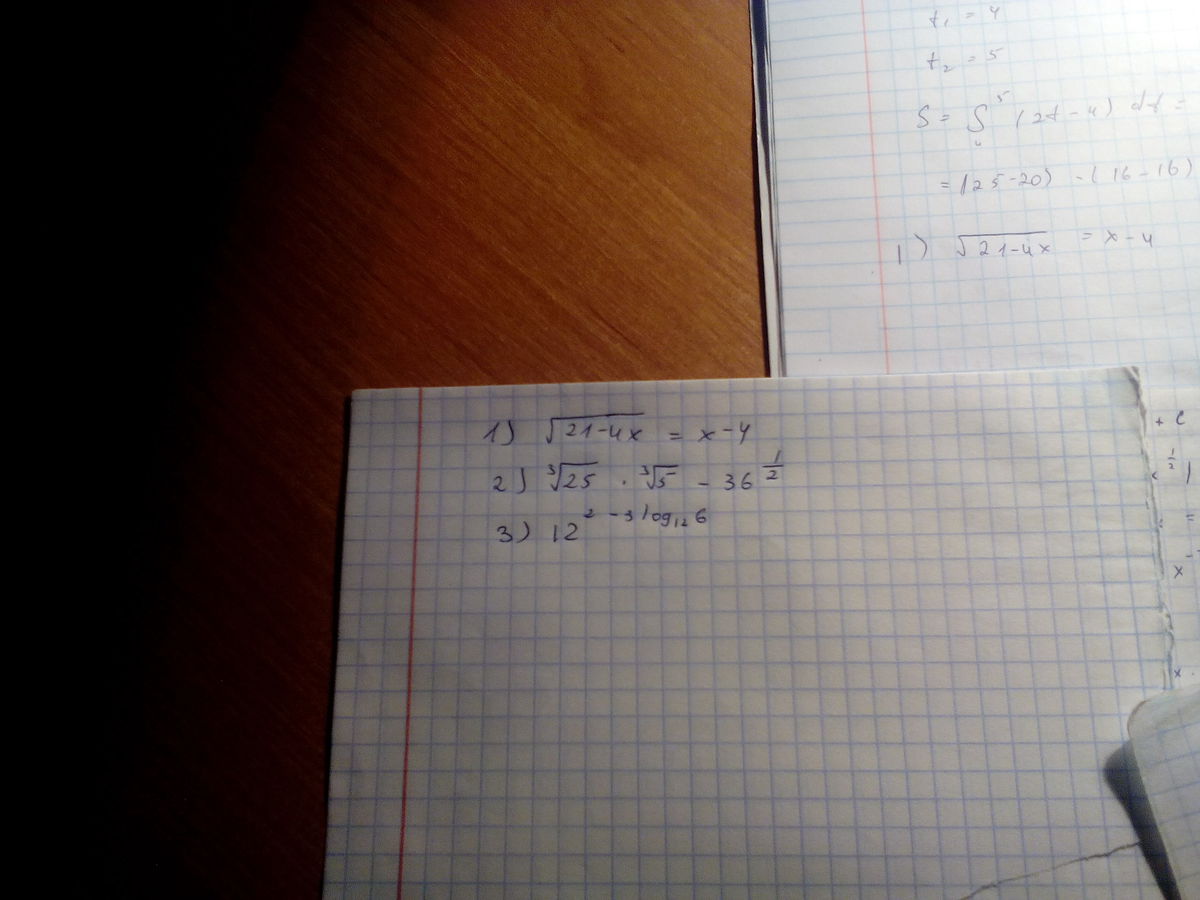 t₁ = 4
t₂ = 5
S = ∫₄⁵ (2t - 4) dt =
= (25-20) - (16-16)
1) √(21-4x) = x-4
1) √(21-4x) = x-4
2) ∛25 · ∛5 - 36^(1/2)
3) 12^(2 - 3log₁₂6)
+ c
1/2 )
=
x
x